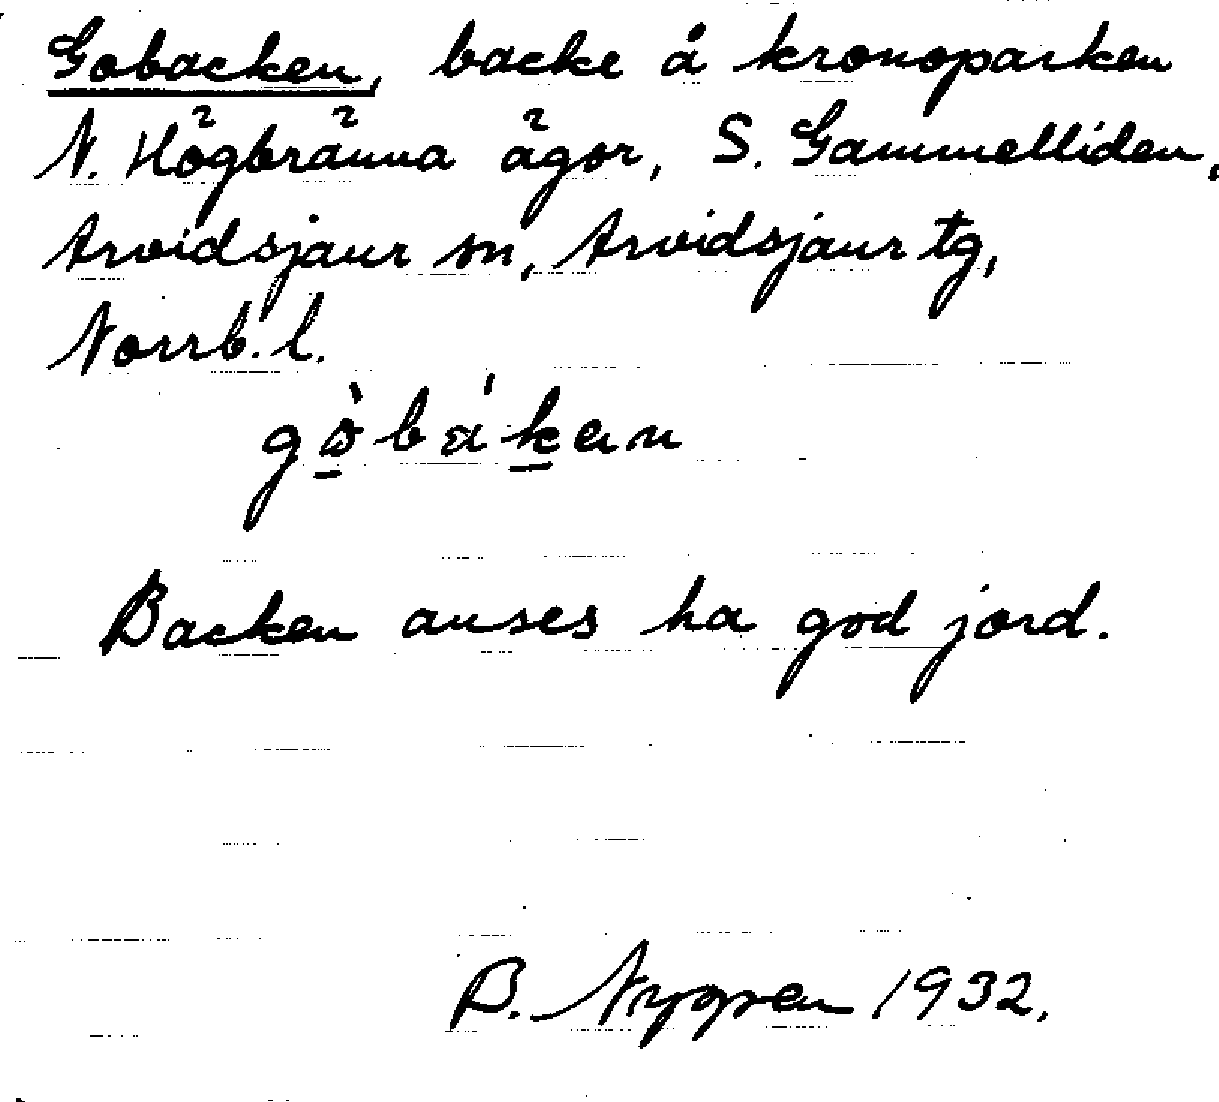 Gobacken, backe å kronoparken
N. Högbränna ägor, S. Gammelliden,
Arvidsjaur sn, Arvidsjaur tg,
Norrb. l.
gòbákan
Backen anses ha god jord.
B. Nygren 1932.